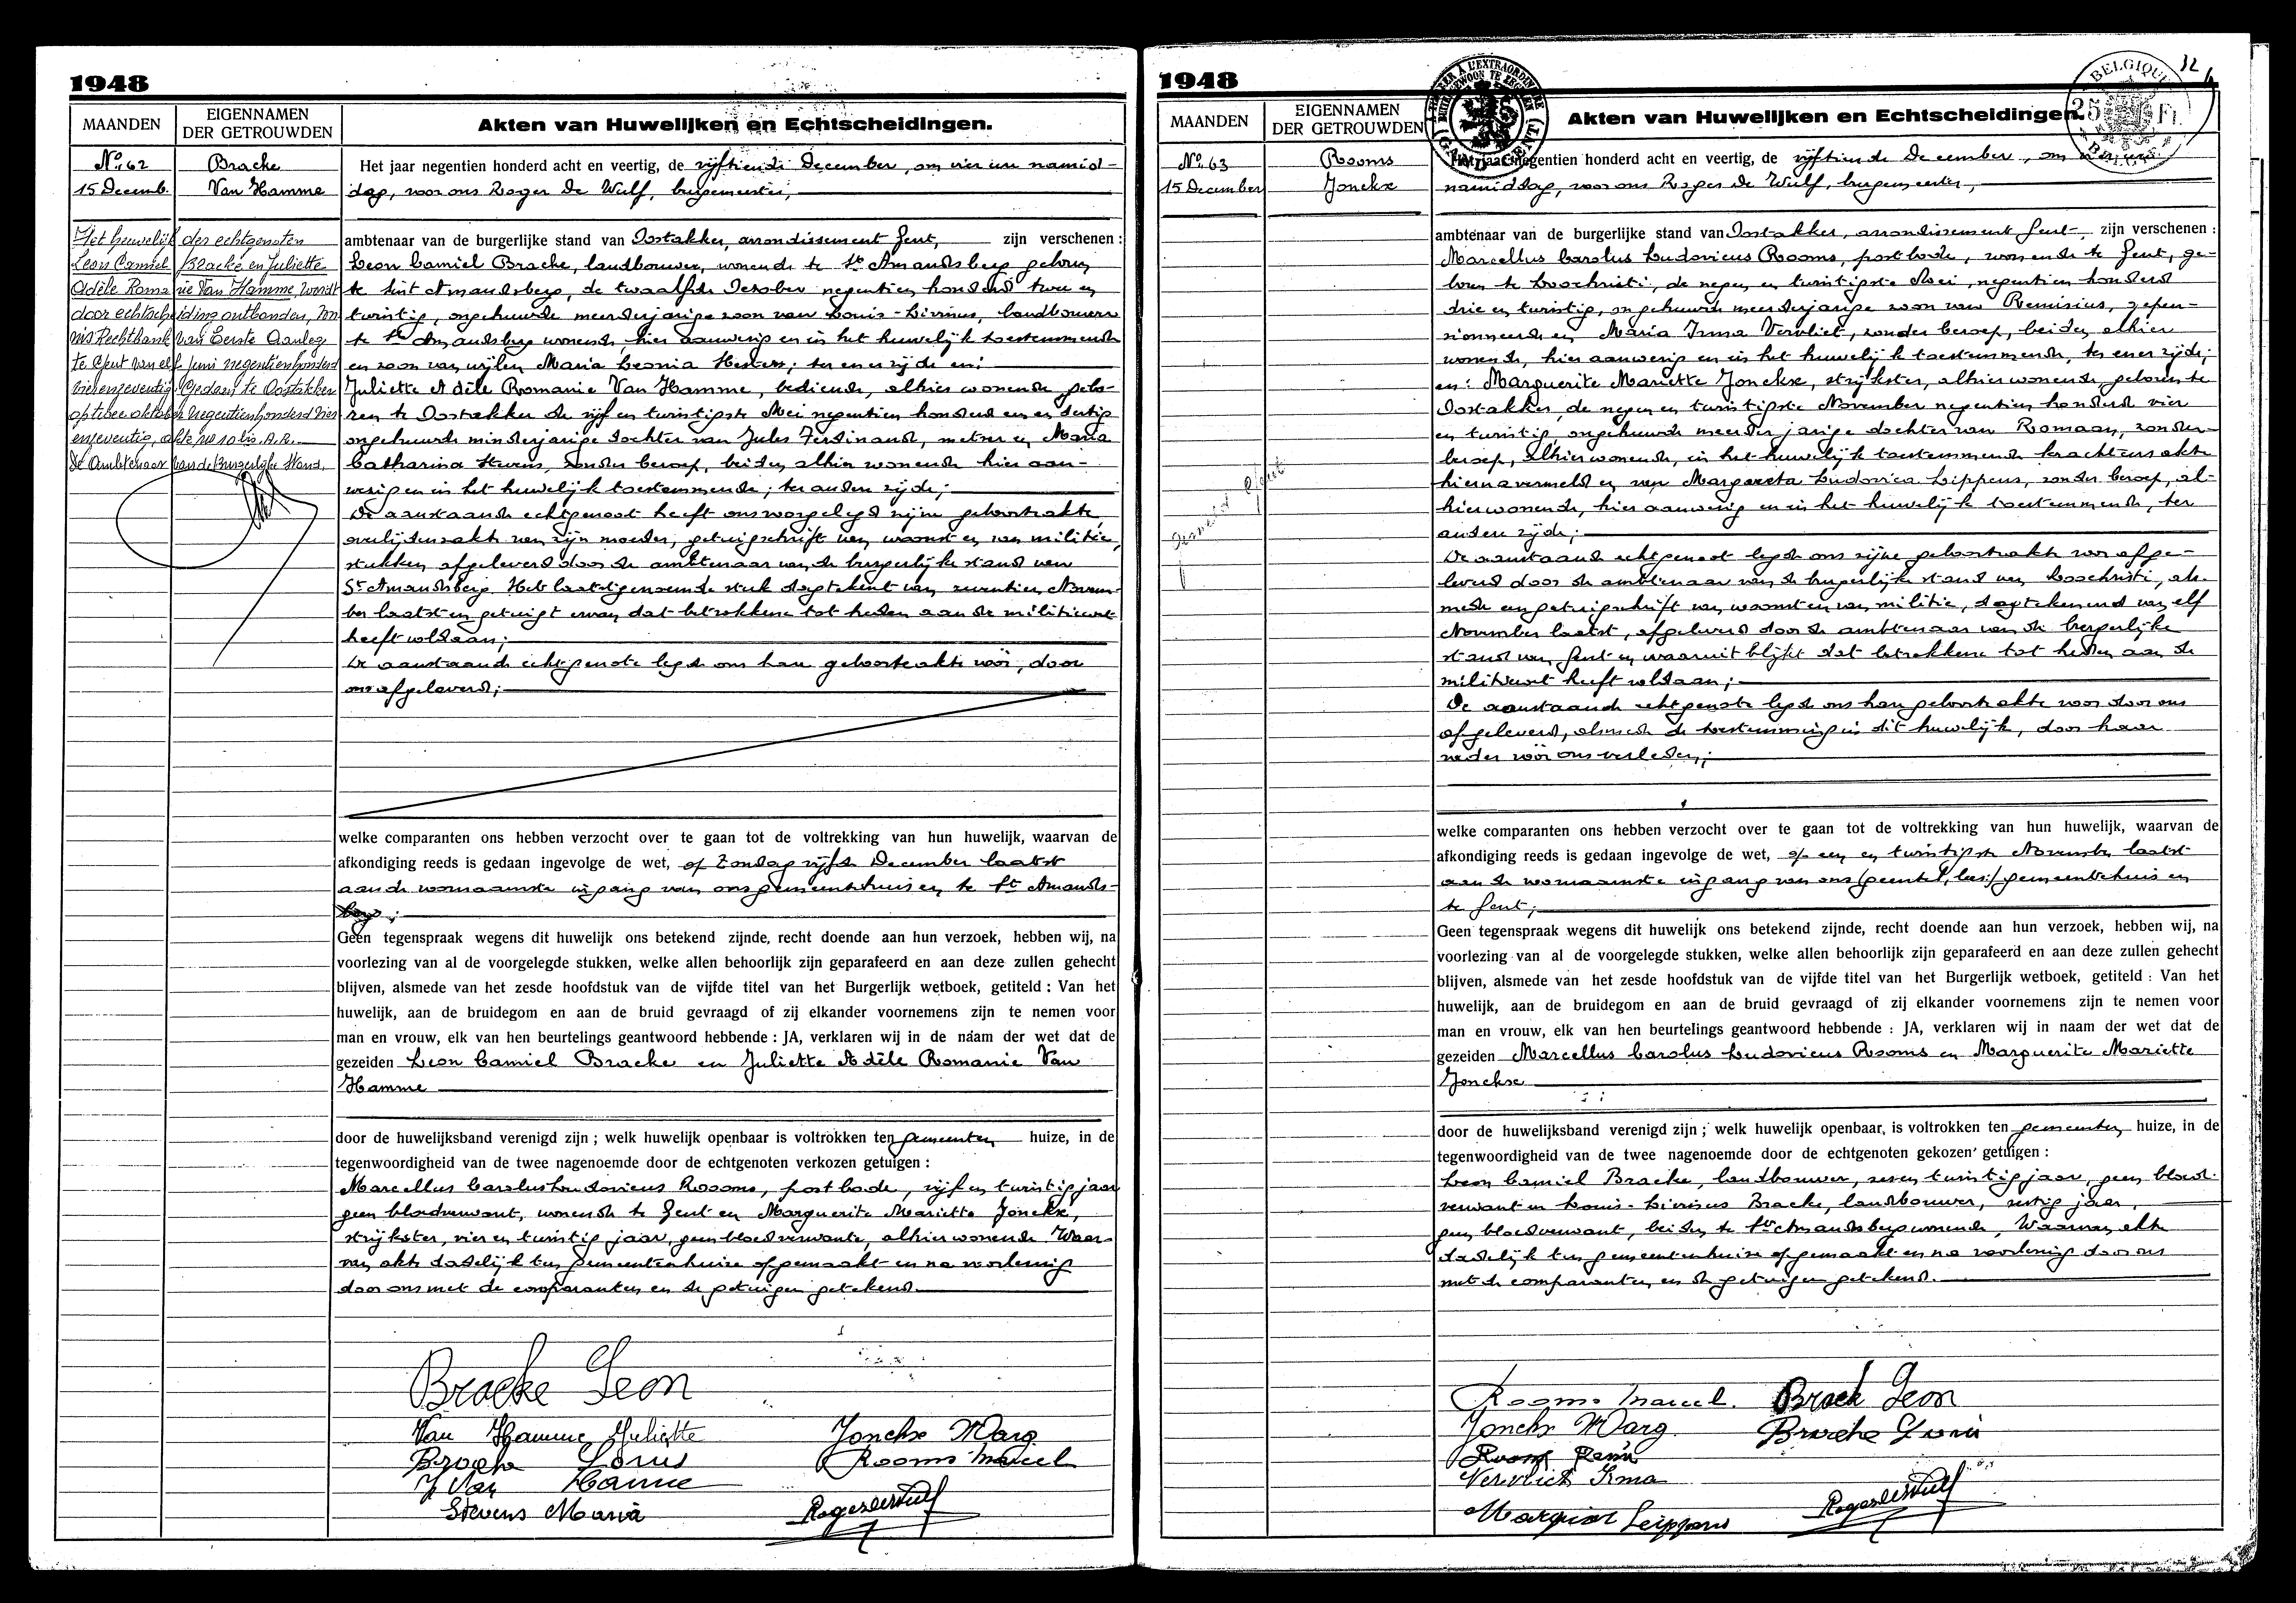 1948
MAANDEN
EIGENNAMEN
DER GETROUWDEN
Akten van Huwelijken en Echtscheidingen.
No. 62
15 Decemb.
Bracke
Van Hamme
Het huwelijk der echtgenoten
Leon Camiel Bracke en Juliette
Adèle Romanie Van Hamme, wordt
door echtscheiding ontbonden, von
nis Rechtbank van Eerste Aanleg
te Gent van elf juni negentienhonderd
vierenzeventig. Gedaan te Oostakker
op twee oktober negentienhonderd vier
enzeventig, akte nr 10 bis. A.R.
De Ambtenaar van de Burgerlijke Stand.
Het jaar negentien honderd acht en veertig, de vijftiende December, om vier uur namid-
dag, voor ons Roger De Wulf, burgemeester,
ambtenaar van de burgerlijke stand van Oostakker, arrondissement Gent, zijn verschenen :
Leon Camiel Bracke, landbouwer, wonende te St Amandsberg geboren
te Sint Amandsberg, de twaalfde October negentien honderd twee en
twintig, ongehuwde meerderjarige zoon van Louis-Livinus, landbouwer
te St Amandsberg wonende, hier aanwezig en in het huwelijk toestemmende
en zoon van wijlen Maria Leonia Hesters; ter ener zijde en:
Juliette Adèle Romanie Van Hamme, bediende, alhier wonende gebo-
ren te Oostakker de vijf en twintigste Mei negentien honderd een en dertig
ongehuwde minderjarige dochter van Jules Ferdinand, metser en Maria
Catharina Stevens, zonder beroep, beiden alhier wonende hier aan-
wezig en in het huwelijk toestemmende; ter andere zijde;
De aanstaande echtgenoot heeft ons voorgelegd zijne geboorteakte,
overlijdensakte van zijn moeder, getuigschrift van woonst en van militie,
stukken afgeleverd door de ambtenaar van de burgerlijke stand van
St Amandsberg. Het laatstgenoemde stuk dagtekent van zeventien Novem-
ber laatst en getuigt ervan dat betrokkene tot heden aan de militiewet
heeft voldaan;
De aanstaande echtgenote legde ons haar geboorteakte vóór, door
ons afgeleverd;
welke comparanten ons hebben verzocht over te gaan tot de voltrekking van hun huwelijk, waarvan de
afkondiging reeds is gedaan ingevolge de wet, op Zondag vijfde December laatst
aan de voornaamste ingang van ons gemeentehuis en te St Amands-
berg;
Geen tegenspraak wegens dit huwelijk ons betekend zijnde, recht doende aan hun verzoek, hebben wij, na
voorlezing van al de voorgelegde stukken, welke allen behoorlijk zijn geparafeerd en aan deze zullen gehecht
blijven, alsmede van het zesde hoofdstuk van de vijfde titel van het Burgerlijk wetboek, getiteld : Van het
huwelijk, aan de bruidegom en aan de bruid gevraagd of zij elkander voornemens zijn te nemen voor
man en vrouw, elk van hen beurtelings geantwoord hebbende : JA, verklaren wij in de naam der wet dat de
gezeiden Leon Camiel Bracke en Juliette Adèle Romanie Van
Hamme
door de huwelijksband verenigd zijn ; welk huwelijk openbaar is voltrokken ten gemeenten huize, in de
tegenwoordigheid van de twee nagenoemde door de echtgenoten verkozen getuigen :
Marcellus Carolus Ludovicus Rooms, postbode, vijf en twintig jaar
geen bloedverwant, wonende te Gent en Marguerite Mariette Jonckx,
strijkster, vier en twintig jaar, geen bloedverwante, alhier wonende. Waar-
van akte dadelijk ten gemeentenhuize opgemaakt en na voorlezing
door ons met de comparanten en de getuigen getekend.
Bracke Leon
Van Hamme Juliette
Jonckx Marg
Bracke Louis
Rooms Marcel
J Van Hamme
Stevens Maria
Roger De Wulf
1948
MAANDEN
EIGENNAMEN
DER GETROUWDEN
Akten van Huwelijken en Echtscheidingen.
BELGIQUE
25 Fr.
BELGIË
No. 63
15 December
Rooms
Jonckx
Het jaar negentien honderd acht en veertig, de vijftiende December, om
namiddag, voor ons Roger De Wulf, burgemeester,
ambtenaar van de burgerlijke stand van Oostakker, arrondissement Gent, zijn verschenen :
Marcellus Carolus Ludovicus Rooms, postbode, wonende te Gent, ge-
boren te Loochristi, de negen en twintigste Mei, negentien honderd
drie en twintig, ongehuwde meerderjarige zoon van Remisius, gepen-
sionneerde en Maria Irma Vervliet, zonder beroep, beiden alhier
wonende, hier aanwezig en in het huwelijk toestemmende, ter ener zijde;
en: Marguerite Mariette Jonckx, strijkster, alhier wonende, geboren te
Oostakker, de negen en twintigste November negentien honderd vier
en twintig, ongehuwde meerderjarige dochter van Romaan, zonder
beroep, alhier wonende, in het huwelijk toestemmende krachtens akte
hierna vermeld en van Margareta Ludovica Lippens, zonder beroep, al-
hier wonende, hier aanwezig en in het huwelijk toestemmende, ter
andere zijde;
De aanstaande echtgenoot legde ons zijne geboorteakte voor afge-
leverd door de ambtenaar van de burgerlijke stand van Loochristi, als-
mede een getuigschrift van woonst en van militie, dagtekenend van elf
November laatst, afgeleverd door de ambtenaar van de burgerlijke
stand van Gent en waaruit blijkt dat betrokkene tot heden aan de
militiewet heeft voldaan;
De aanstaande echtgenote legde ons haar geboorteakte voor door ons
afgeleverd, alsmede de toestemming in dit huwelijk, door haar
vader vóór ons verleden;
welke comparanten ons hebben verzocht over te gaan tot de voltrekking van hun huwelijk, waarvan de
afkondiging reeds is gedaan ingevolge de wet, op een en twintigste November laatst
aan de voornaamste ingang van ons (geentel, lees:) gemeentehuis en
te Gent;
Geen tegenspraak wegens dit huwelijk ons betekend zijnde, recht doende aan hun verzoek, hebben wij, na
voorlezing van al de voorgelegde stukken, welke allen behoorlijk zijn geparafeerd en aan deze zullen gehecht
blijven, alsmede van het zesde hoofdstuk van de vijfde titel van het Burgerlijk wetboek, getiteld : Van het
huwelijk, aan de bruidegom en aan de bruid gevraagd of zij elkander voornemens zijn te nemen voor
man en vrouw, elk van hen beurtelings geantwoord hebbende : JA, verklaren wij in naam der wet dat de
gezeiden Marcellus Carolus Ludovicus Rooms en Marguerite Mariette
Jonckx
door de huwelijksband verenigd zijn ; welk huwelijk openbaar, is voltrokken ten gemeenten huize, in de
tegenwoordigheid van de twee nagenoemde door de echtgenoten gekozen getuigen :
Leon Camiel Bracke, landbouwer, zes en twintig jaar, geen bloed-
verwant en Louis-Livinus Bracke, landbouwer, zestig jaar,
geen bloedverwant, beiden te St Amandsberg wonende, Waarvan akte
dadelijk ten gemeentenhuize opgemaakt en na voorlezing door ons
met de comparanten en de getuigen getekend.
Rooms Marcel.
Brack Leon
Jonckx Marg.
Bracke Louis
Rooms Remi
Vervliet Irma
Roger De Wulf
Lippens